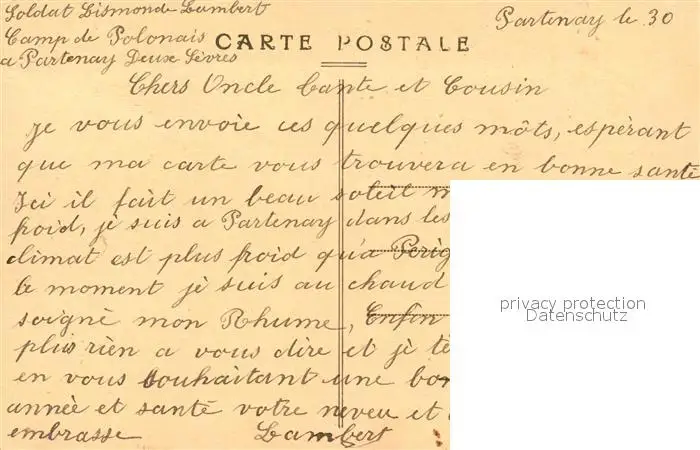 Soldat Lismonde Lambert
Camp de Polonais
a Partenay Deux Sèvres
Partenay le 30
CARTE POSTALE
Chers Oncle Tante et Cousin
je vous envoie ces quelques môts, espèrant
que ma carte vous trouvera en bonne santé
Ici il fait un beau soleil
froid, je suis a Partenay dans les
climat est plus froid qu'a Perig
le moment je suis au chaud
soignè mon Rhume, Enfin
plus rien a vous dire et je
en vous souhaitant une bon
année et santé votre neveu et
embrasse Lambert
privacy protection
Datenschutz